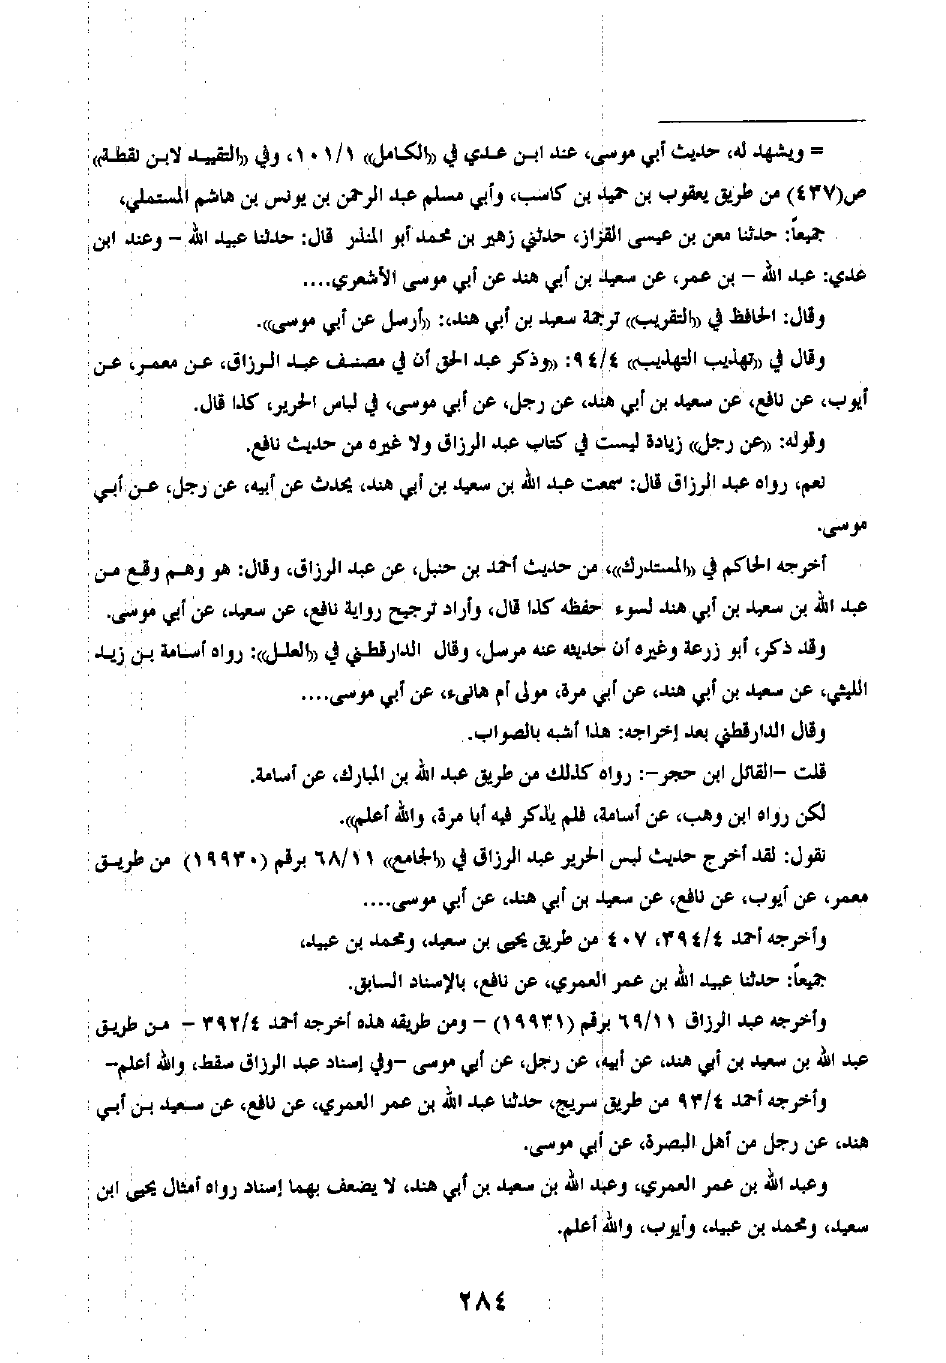 = ويشهد له، حديث أبي موسى، عند ابن عدي في ((الكامل)) ١٠١/١، وفي ((التقييد لابن نقطة))
ص(٤٣٧) من طريق يعقوب بن حميد بن كاسب، وأبي مسلم عبد الرحمن بن يونس بن هاشم المستملي،
جميعاً: حدثنا معن بن عيسى القزاز، حدثني زهير بن محمد أبو المنذر قال: حدثنا عبيد الله – وعند ابن
عدي: عبد الله – بن عمر، عن سعيد بن أبي هند عن أبي موسى الأشعري....
وقال: الحافظ في ((التقريب)) ترجمة سعيد بن أبي هند،: ((أرسل عن أبي موسى)).
وقال في ((تهذيب التهذيب)) ٩٤/٤: ((وذكر عبد الحق أن في مصنف عبد الرزاق، عن معمر، عن
أيوب، عن نافع، عن سعيد بن أبي هند، عن رجل، عن أبي موسى، في لباس الحرير، كذا قال.
وقوله: ((عن رجل)) زيادة ليست في كتاب عبد الرزاق ولا غيره من حديث نافع.
نعم، رواه عبد الرزاق قال: سمعت عبد الله بن سعيد بن أبي هند، يحدث عن أبيه، عن رجل، عن أبي
موسى.
أخرجه الحاكم في ((المستدرك))، من حديث أحمد بن حنبل، عن عبد الرزاق، وقال: هو وهم وقع من
عبد الله بن سعيد بن أبي هند لسوء حفظه كذا قال، وأراد ترجيح رواية نافع، عن سعيد، عن أبي موسى.
وقد ذكر، أبو زرعة وغيره أن حديثه عنه مرسل، وقال الدارقطني في ((العلل)): رواه أسامة بن زيد
الليثي، عن سعيد بن أبي هند، عن أبي مرة، مولى أم هانىء، عن أبي موسى....
وقال الدارقطني بعد إخراجه: هذا أشبه بالصواب.
قلت –القائل ابن حجر–: رواه كذلك من طريق عبد الله بن المبارك، عن أسامة.
لكن رواه ابن وهب، عن أسامة، فلم يذكر فيه أبا مرة، والله أعلم)).
نقول: لقد أخرج حديث لبس الحرير عبد الرزاق في ((الجامع)) ٦٨/١١ برقم (١٩٩٣٠) من طريق
معمر، عن أيوب، عن نافع، عن سعيد بن أبي هند، عن أبي موسى....
وأخرجه أحمد ٣٩٤/٤، ٤٠٧ من طريق يحيى بن سعيد، ومحمد بن عبيد،
جميعاً: حدثنا عبيد الله بن عمر العمري، عن نافع، بالإسناد السابق.
وأخرجه عبد الرزاق ٦٩/١١ برقم (١٩٩٣١) – ومن طريقه هذه أخرجه أحمد ٣٩٢/٤ – من طريق
عبد الله بن سعيد بن أبي هند، عن أبيه، عن رجل، عن أبي موسى –وفي إسناد عبد الرزاق سقط، والله أعلم–
وأخرجه أحمد ٩٣/٤ من طريق سريج، حدثنا عبد الله بن عمر العمري، عن نافع، عن سعيد بن أبي
هند، عن رجل من أهل البصرة، عن أبي موسى.
وعبد الله بن عمر العمري، وعبد الله بن سعيد بن أبي هند، لا يضعف بهما إسناد رواه أمثال يحيى ابن
سعيد، ومحمد بن عبيد، وأيوب، والله أعلم.
٢٨٤